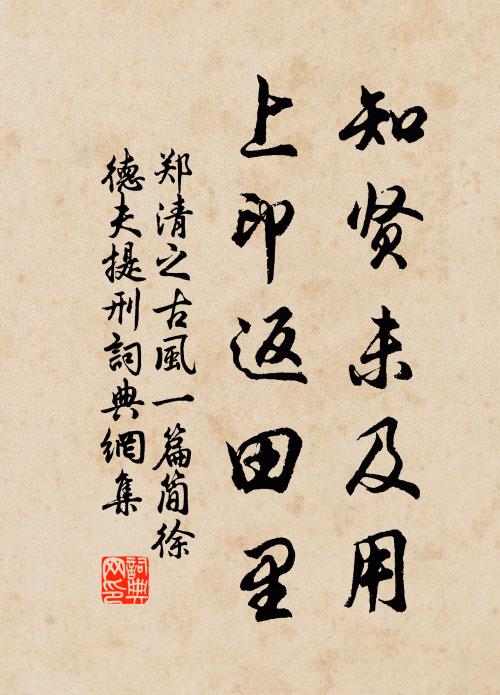 知贤未及用
上印返田里
郑清之古風一篇简徐
德夫提刑詞典網集
詞典网印